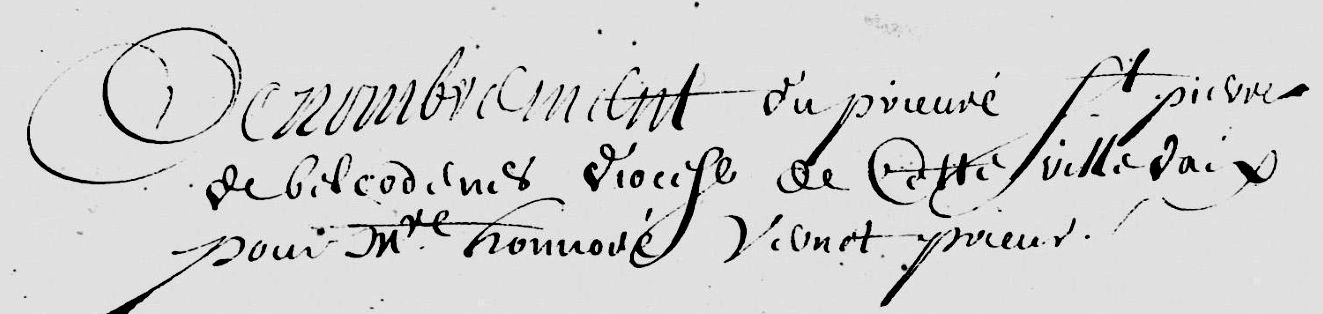 Denombrement du prieuré St pierre
de belcodenes diocese de Cette ville daix
pour Mre honnoré Viernet prieur.